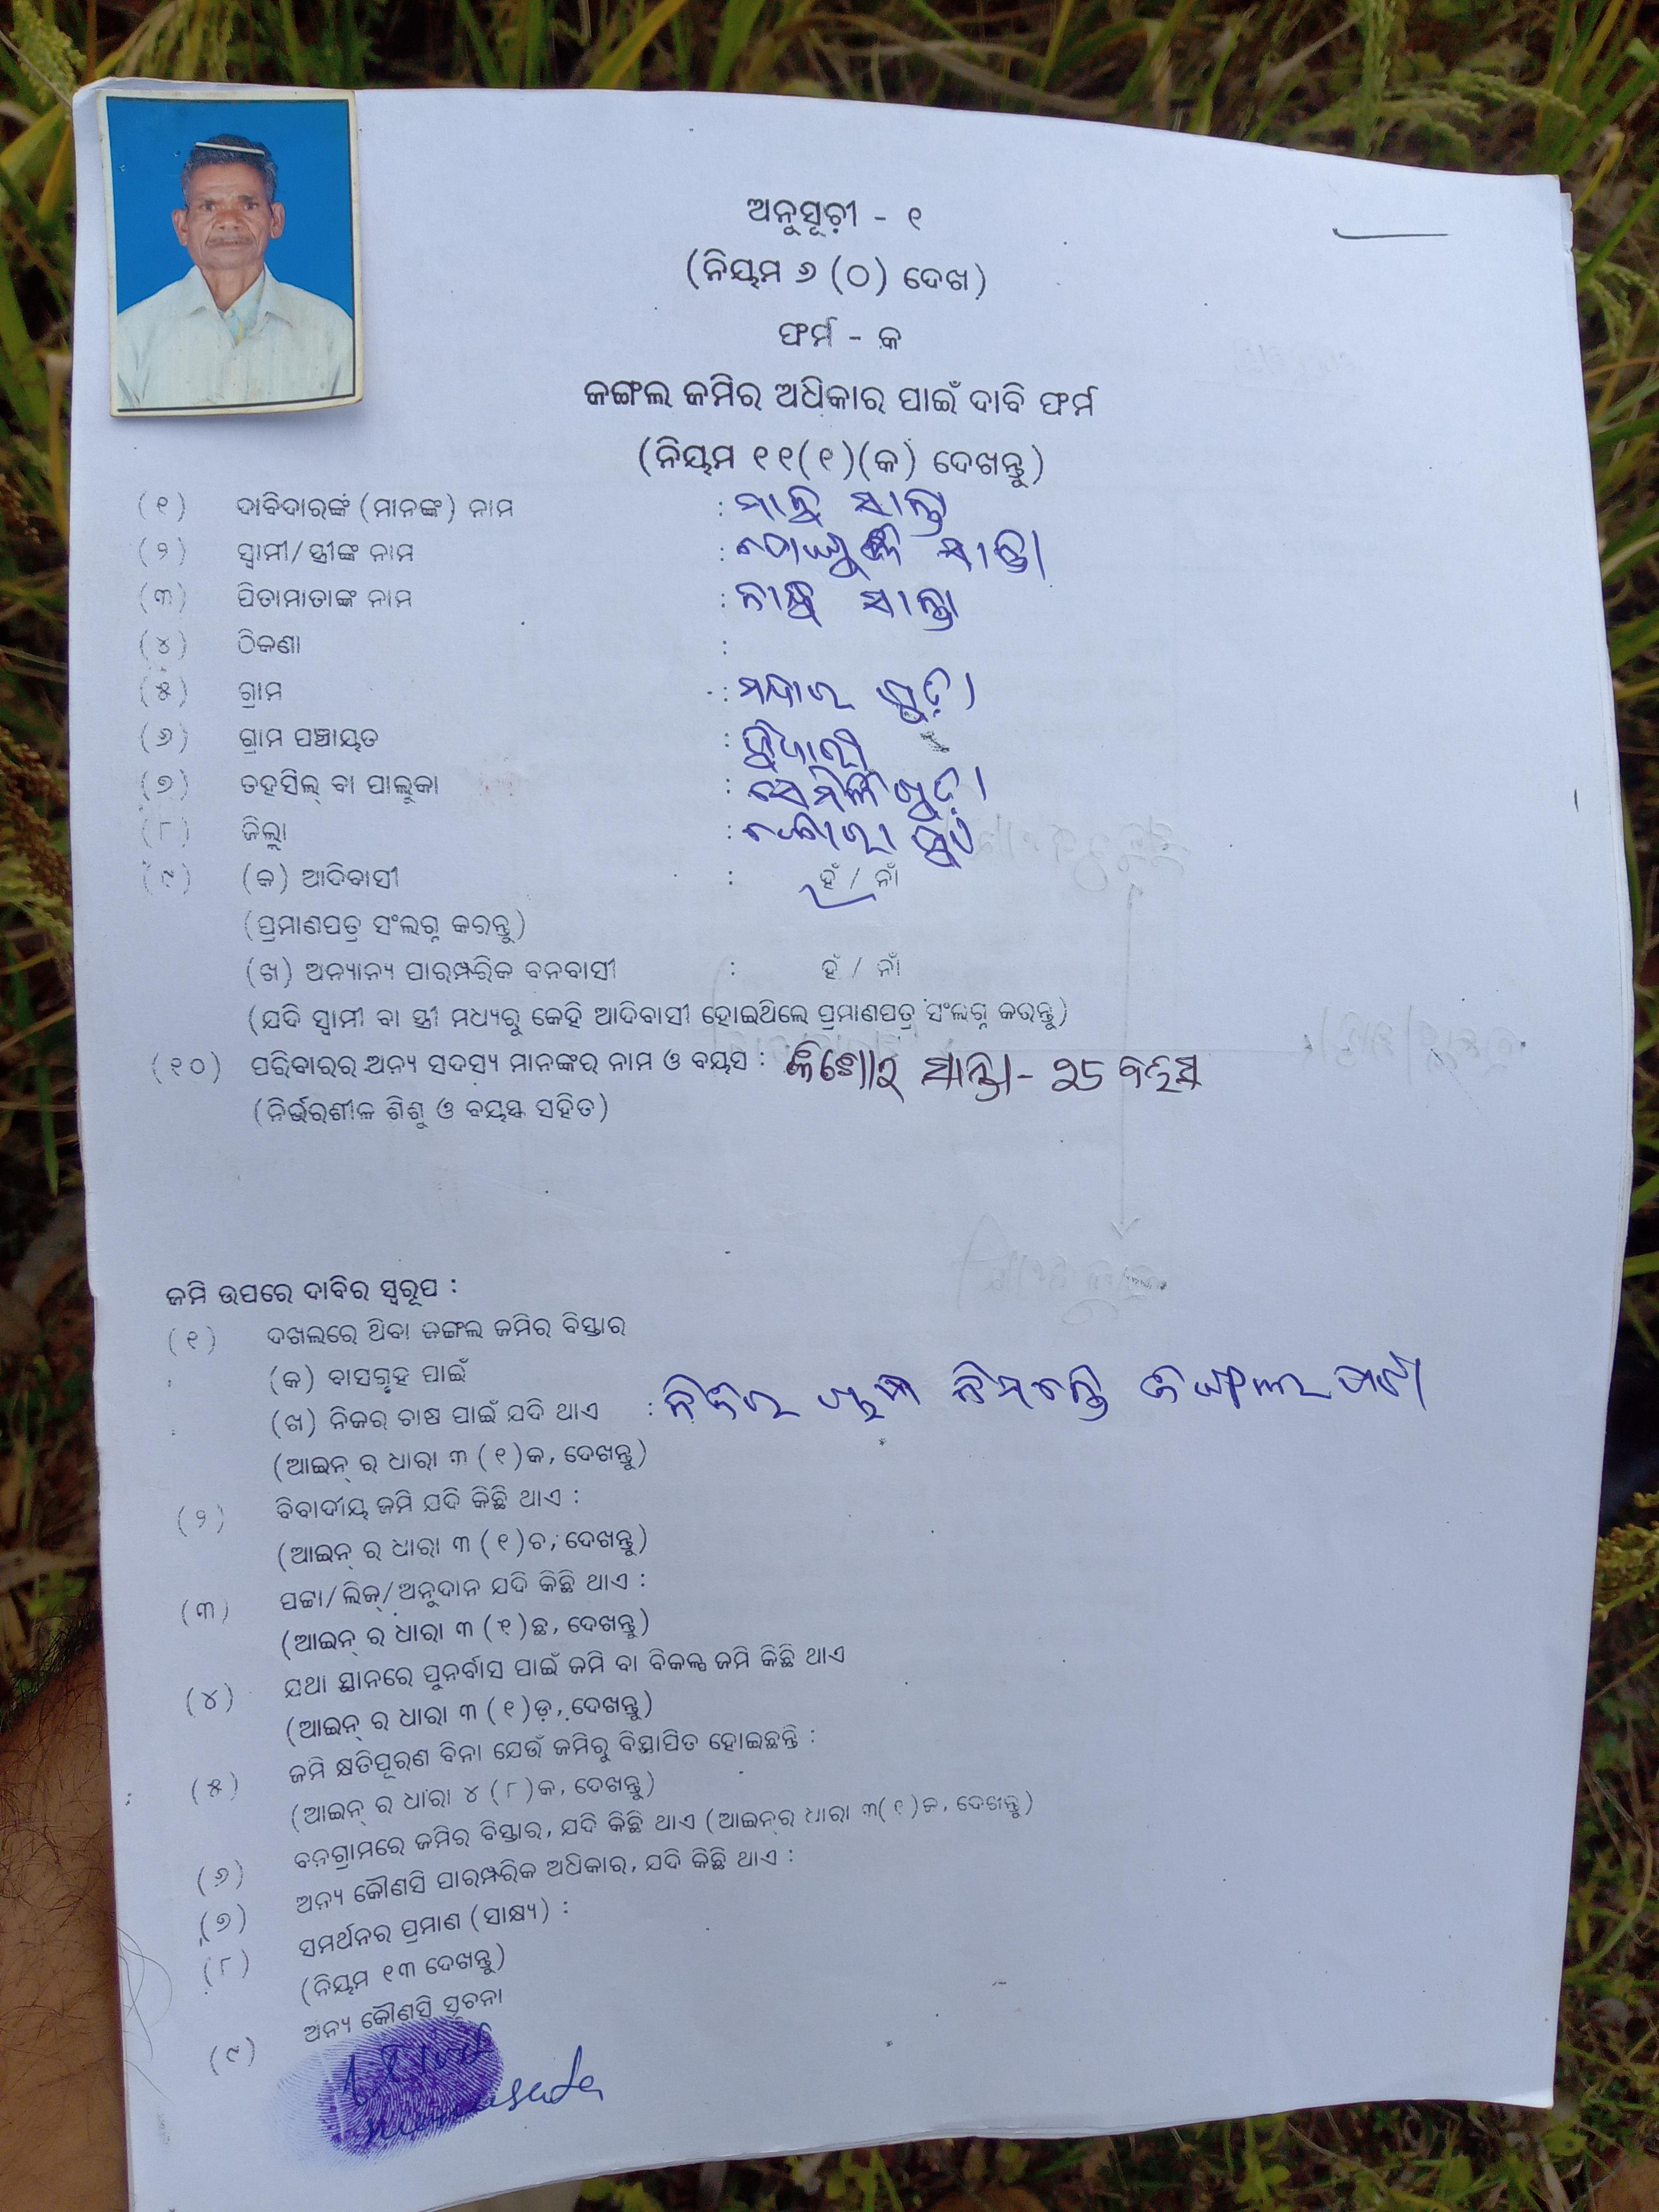 ଅନୁସୂଚୀ - ୧
(ନିୟମ ୬ (ଠ) ଦେଖ)
ଫର୍ମ - କ
ଜଙ୍ଗଲ ଜମିର ଅଧିକାର ପାଇଁ ଦାବି ଫର୍ମ
(ନିୟମ ୧୧(୧)(କ) ଦେଖନ୍ତୁ)
(୧) ଦାବିଦାରଙ୍କ (ମାନଙ୍କ) ନାମ :
(୨) ସ୍ୱାମୀ/ସ୍ତ୍ରୀଙ୍କ ନାମ :
(୩) ପିତାମାତାଙ୍କ ନାମ :
(୪) ଠିକଣା :
(୫) ଗ୍ରାମ :
(୬) ଗ୍ରାମ ପଞ୍ଚାୟତ :
(୭) ତହସିଲ୍ ବା ତାଲୁକା : ସେମିଳିଗୁଡ଼ା
(୮) ଜିଲ୍ଲା : କୋରାପୁଟ
(୯) (କ) ଆଦିବାସୀ : ହଁ / ନାଁ
(ପ୍ରମାଣପତ୍ର ସଂଲଗ୍ନ କରନ୍ତୁ)
(ଖ) ଅନ୍ୟାନ୍ୟ ପାରମ୍ପରିକ ବନବାସୀ : ହଁ / ନାଁ
(ଯଦି ସ୍ୱାମୀ ବା ସ୍ତ୍ରୀ ମଧ୍ୟରୁ କେହି ଆଦିବାସୀ ହୋଇଥିଲେ ପ୍ରମାଣପତ୍ର ସଂଲଗ୍ନ କରନ୍ତୁ)
(୧୦) ପରିବାରର ଅନ୍ୟ ସଦସ୍ୟ ମାନଙ୍କର ନାମ ଓ ବୟସ : କିଶୋର ସାନ୍ତା - ୨୫ ବର୍ଷ
(ନିର୍ଭରଶୀଳ ଶିଶୁ ଓ ବୟସ୍କ ସହିତ)
ଜମି ଉପରେ ଦାବିର ସ୍ୱରୂପ :
(୧) ଦଖଲରେ ଥିବା ଜଙ୍ଗଲ ଜମିର ବିସ୍ତାର
(କ) ବାସଗୃହ ପାଇଁ
(ଖ) ନିଜର ଚାଷ ପାଇଁ ଯଦି ଥାଏ : ନିଜର ନିମନ୍ତେ
(ଆଇନ୍ ର ଧାରା ୩ (୧)କ, ଦେଖନ୍ତୁ)
(୨) ବିବାଦୀୟ ଜମି ଯଦି କିଛି ଥାଏ :
(ଆଇନ୍ ର ଧାରା ୩ (୧)ଚ, ଦେଖନ୍ତୁ)
(୩) ପଟ୍ଟା/ଲିଜ୍/ଅନୁଦାନ ଯଦି କିଛି ଥାଏ :
(ଆଇନ୍ ର ଧାରା ୩ (୧)ଛ, ଦେଖନ୍ତୁ)
(୪) ଯଥା ସ୍ଥାନରେ ପୁନର୍ବାସ ପାଇଁ ଜମି ବା ବିକଳ୍ପ ଜମି କିଛି ଥାଏ
(ଆଇନ୍ ର ଧାରା ୩ (୧)ଡ଼, ଦେଖନ୍ତୁ)
(୫) ଜମି କ୍ଷତିପୂରଣ ବିନା ଯେଉଁ ଜମିରୁ ବିସ୍ଥାପିତ ହୋଇଛନ୍ତି :
(ଆଇନ୍ ର ଧାରା ୪ (୮)କ, ଦେଖନ୍ତୁ)
(୬) ବନଗ୍ରାମରେ ଜମିର ବିସ୍ତାର, ଯଦି କିଛି ଥାଏ (ଆଇନ୍‌ର ଧାରା ୩(୧)ଜ, ଦେଖନ୍ତୁ)
(୭) ଅନ୍ୟ କୌଣସି ପାରମ୍ପରିକ ଅଧିକାର, ଯଦି କିଛି ଥାଏ :
(୮) ସମର୍ଥନର ପ୍ରମାଣ (ସାକ୍ଷ୍ୟ) :
(ନିୟମ ୧୩ ଦେଖନ୍ତୁ)
(୯) ଅନ୍ୟ କୌଣସି ସୂଚନା